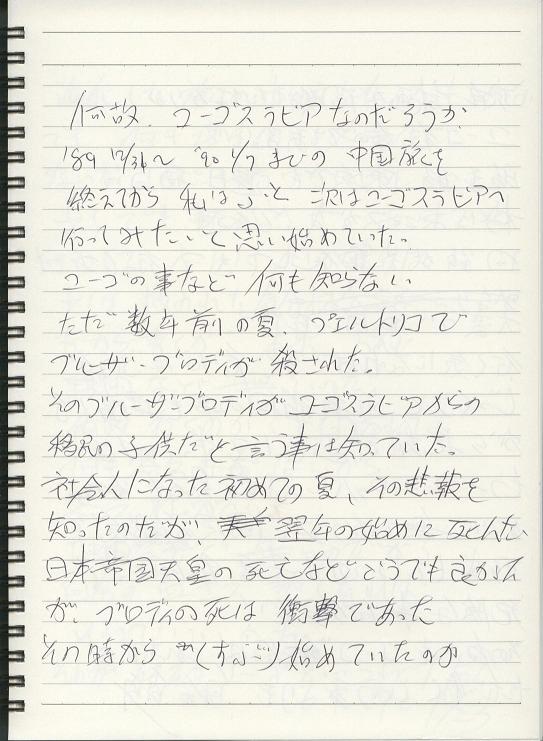 何故、ユーゴスラビアなのだろうか
'89 12/31〜 '90 1/7 までの 中国旅を
終えてから 私は ふと 次はユーゴスラビアへ
行ってみたいと思い始めていた。
ユーゴの事など 何も知らない
ただ 数年前の夏、プエルトリコで
ブルーザー・ブロディが 殺された。
そのブルーザーブロディが ユーゴスラビアからの
移民の子供だと言う事は知っていた。
社会人になった初めての夏、その悲報を
知ったのだが、翌年の始めに死んだ
日本帝国天皇の死亡などどうでも良かった
が、ブロディの死は 衝撃であった
その時から (すぶり)始めていたのか